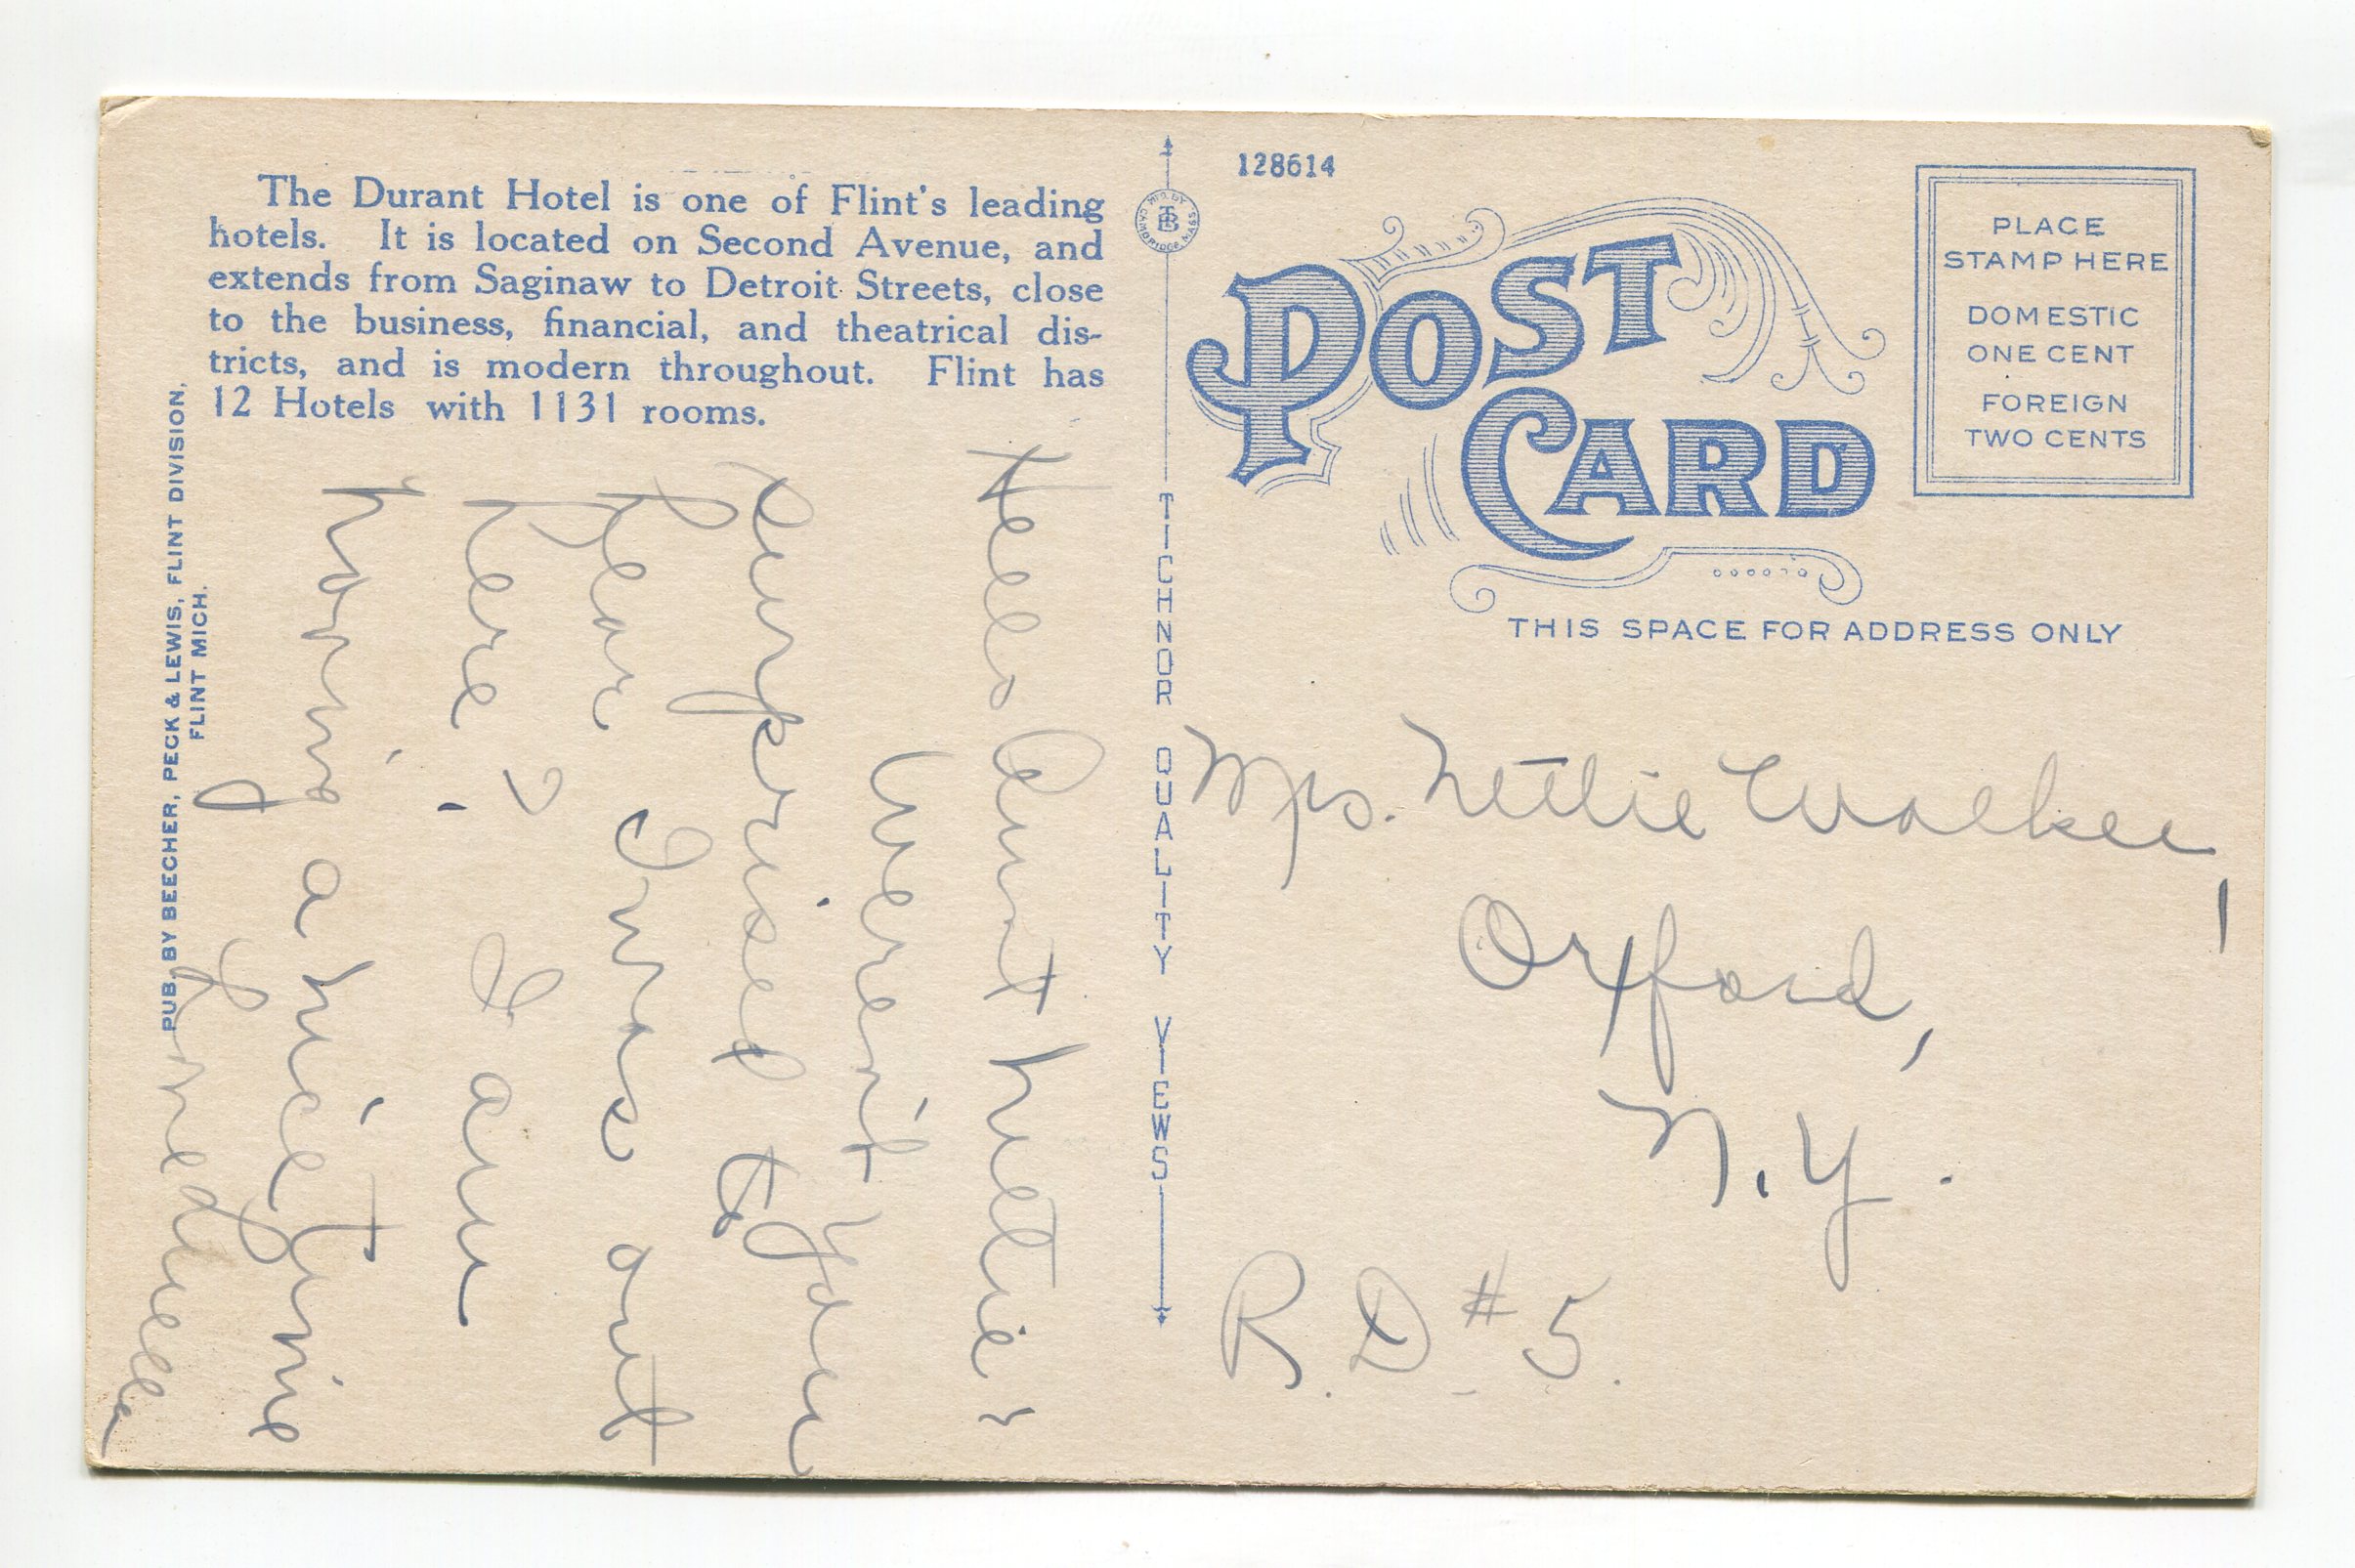 The Durant Hotel is one of Flint's leading
hotels. It is located on Second Avenue, and
extends from Saginaw to Detroit Streets, close
to the business, financial, and theatrical dis-
tricts, and is modern throughout. Flint has
12 Hotels with 1131 rooms.
PUB. BY BEECHER, PECK & LEWIS, FLINT DIVISION,
FLINT MICH.
Hello Aunt Nettie ~
Weren't you
surprised to
hear I was out
here? I am
having a nice time
Loredeuella
MFG. BY
TB
CAMBRIDGE, MASS
TICHNOR QUALITY VIEWS
128614
POST
CARD
PLACE
STAMP HERE
DOMESTIC
ONE CENT
FOREIGN
TWO CENTS
THIS SPACE FOR ADDRESS ONLY
Mrs. Nettie Walker,
Oxford,
N.Y.
R.D. #5.